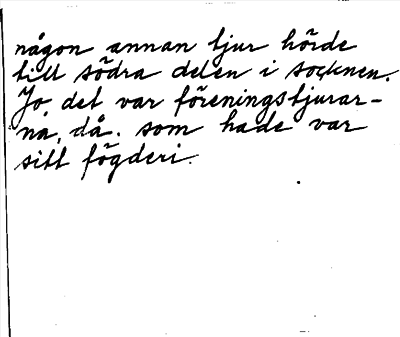 någon annan tjur hörde
till södra delen i socknen.
Jo, det var föreningstjurar-
na, då. som hade var
sitt fögderi.